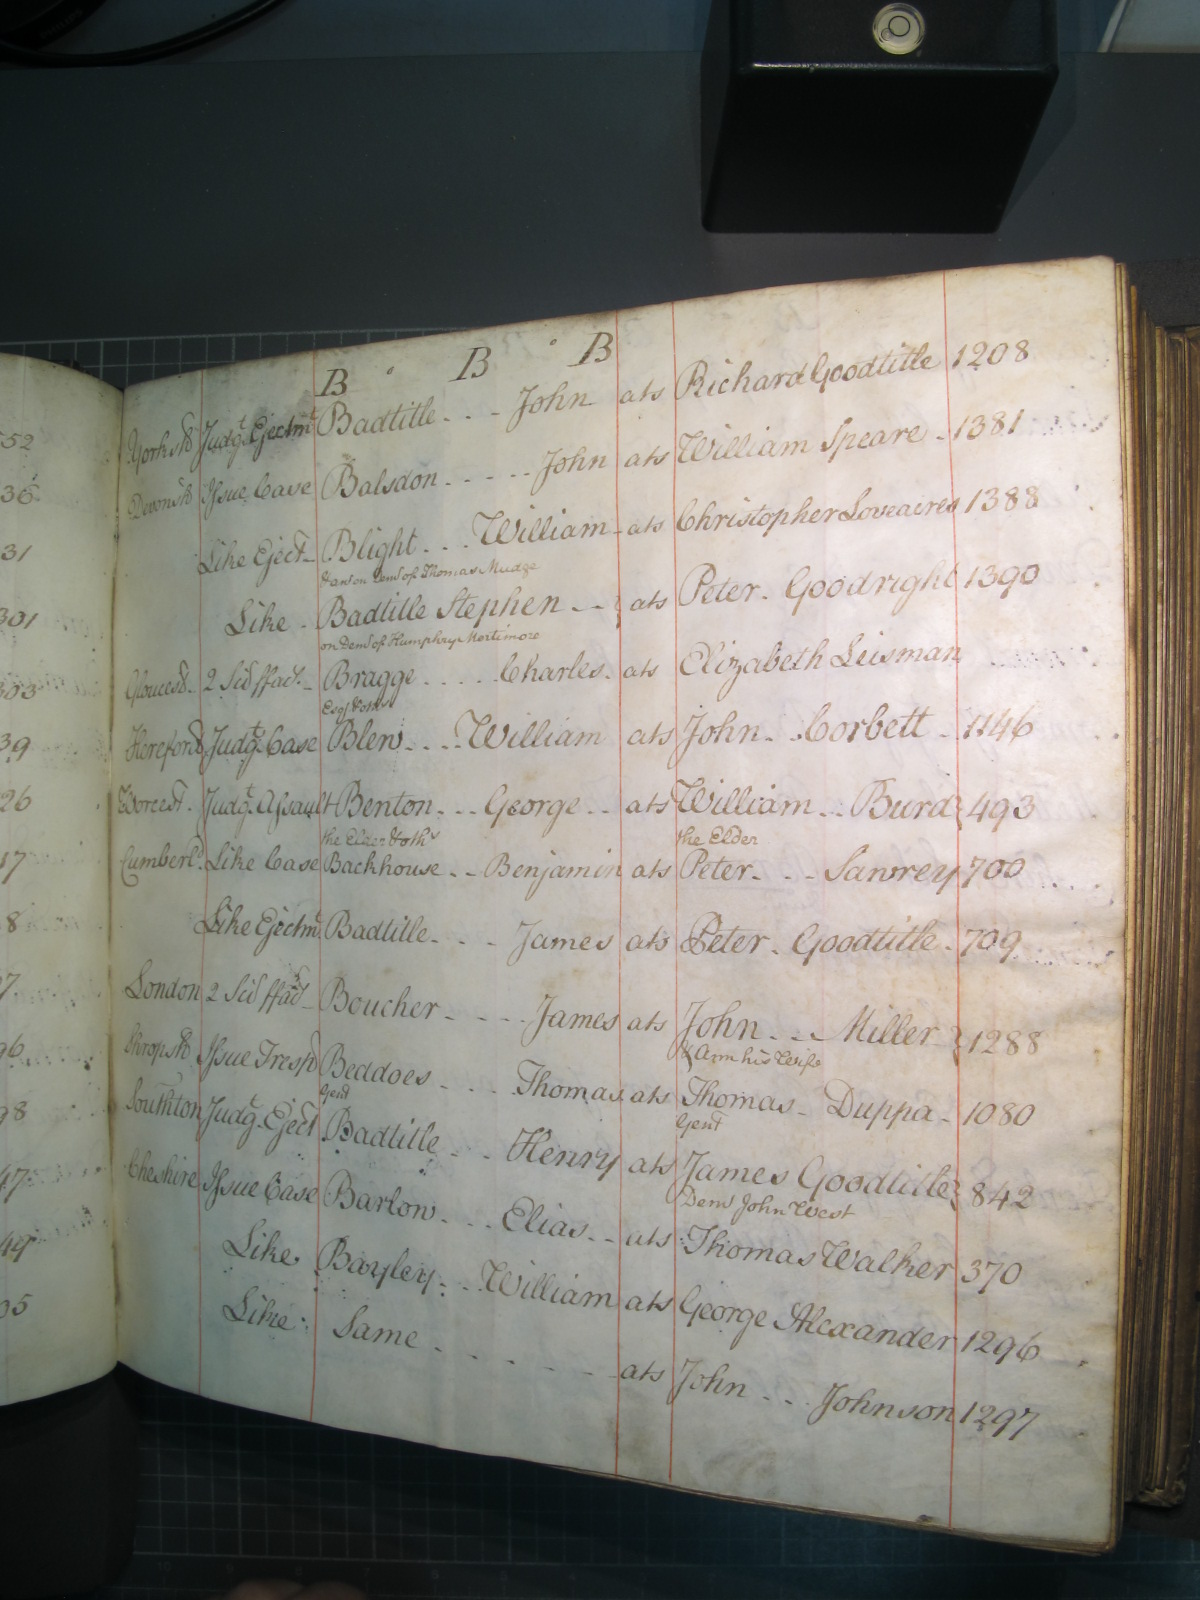 B B B
552
36
31
301
303
39
26
17
8
7
96
98
47
49
05
Yorksh Judgt Ejectmt Badtitle - - - John ats Richard Goodtitle 1208
Devonsh Issue Case Balsdon - - - - - John ats William Speare - 1381
Like Eject - Blight - - - William - ats Christopher Loveacres 1388
& an on Dem of Thomas Mudge
Like - Badtitle Stephen - - } ats Peter - Goodright 1390
on Dem of Humphry Mortimore
Gloucesr - 2 Scd ffac - Bragge - - - - - Charles - ats Elizabeth Leisman
Esq & othrs
Hereford Judgt Case Blew - - - - William ats John - - Corbett - 1146
Worcest - Judgt Assault Benton - - - George - - ats William - - Burd } 493
the Elder & othrs the Elder
Cumberld Like Case Backhouse - - Benjamin ats Peter - - - Sawrey 700
Like Ejectmt Badtitle - - - James ats Peter - Goodtitle - 709
London 2 Scd ffacs - Boucher - - - - James ats John - - - Miller } 1288
& Ann his Wife
Shropsh Issue Tresp Beddoes - - - Thomas ats Thomas - Duppa - 1080
Gent Gent
Southton Judgt - Eject Badtitle - - - Henry ats James Goodtitle } 842
Dem John West
Cheshire Issue Case Barlow - - - Elias - - ats Thomas Walker 370
Like Bayley - - - William ats George Alexander 1296
Like Same - - - - - - ats John - - - Johnson 1297